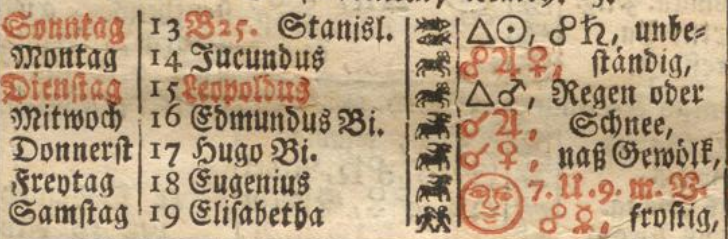 Sonntag 13 B25. Stanisl. △☉, ☍♄, unbe⸗
Montag 14 Jucundus ☍♃♀, ständig,
Dienstag 15 Leopoldus △♂, Regen oder
Mitwoch 16 Edmundus Bi. ☌♃, Schnee,
Donnerst 17 Hugo Bi. ☌♀, naß Gewölk,
Freytag 18 Eugenius 7. U. 9. m. V.
Samstag 19 Elisabetha ☍☿, frostig,